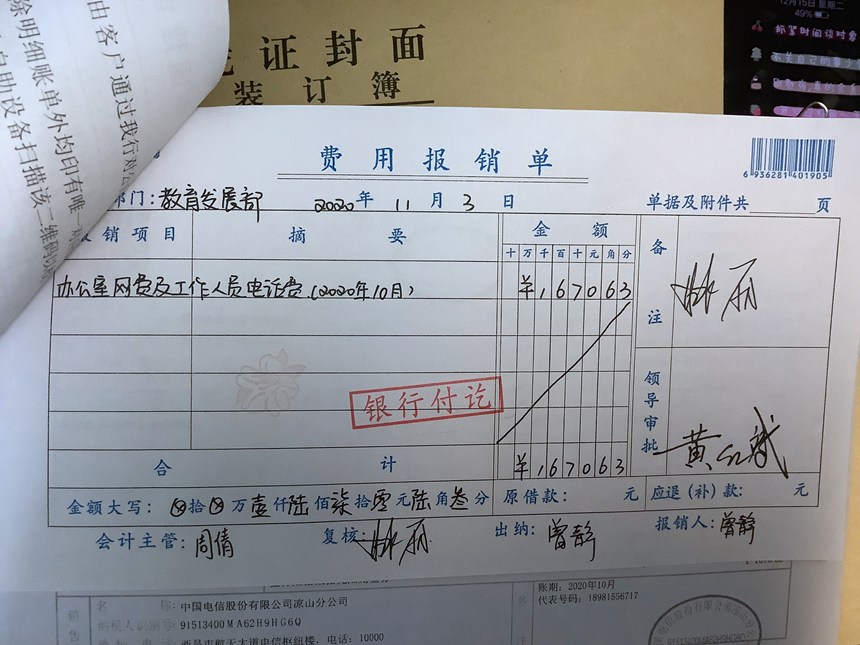 证封面
装订簿
12月15日 星期二
49%
抓紧时间谈对象
由客户通过我行对
除明细账单外均印有唯一
自助设备扫描该二维码
费用报销单
6 936281 401905
部门：教育发展部 2020年11月3日 单据及附件共 页
报销项目 摘要 金额 备注
十万千百十元角分
办公室网费及工作人员电话费（2020年10月） ¥1,67063
林丽
银行付讫
领导审批
合计 ¥1,67063
金额大写：⊗拾⊗万壹仟陆佰柒拾零元陆角叁分 原借款： 元 应退（补）款： 元
会计主管：周倩 复核：林丽 出纳：曾静 报销人：曾静
账期：2020年10月
名 称：中国电信股份有限公司凉山分公司 代表号码：18981556717
销售
纳税人识别号：91513400MA62H9HG6Q
电信枢纽楼，电话：10000